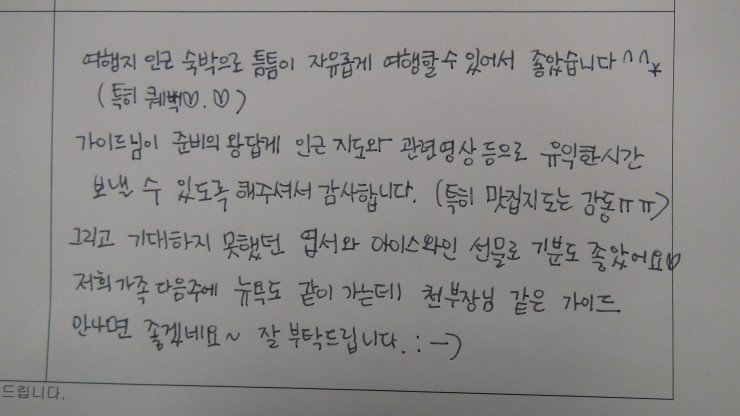 여행지 인근 숙박으로 틈틈이 자유롭게 여행할 수 있어서 좋았습니다 ^^*
(특히 퀘벡♡.♡)
가이드님이 준비의 왕답게 인근 지도와 관련영상 등으로 유익한시간
보낼 수 있도록 해주셔서 감사합니다. (특히 맛집지도는 감동ㅠㅠ)
그리고 기대하지 못했던 엽서와 아이스와인 선물로 기분도 좋았어요♡
저희가족 다음주에 뉴욕도 같이 가는데 천부장님 같은 가이드
만나면 좋겠네요~ 잘 부탁드립니다. :-)
드립니다.